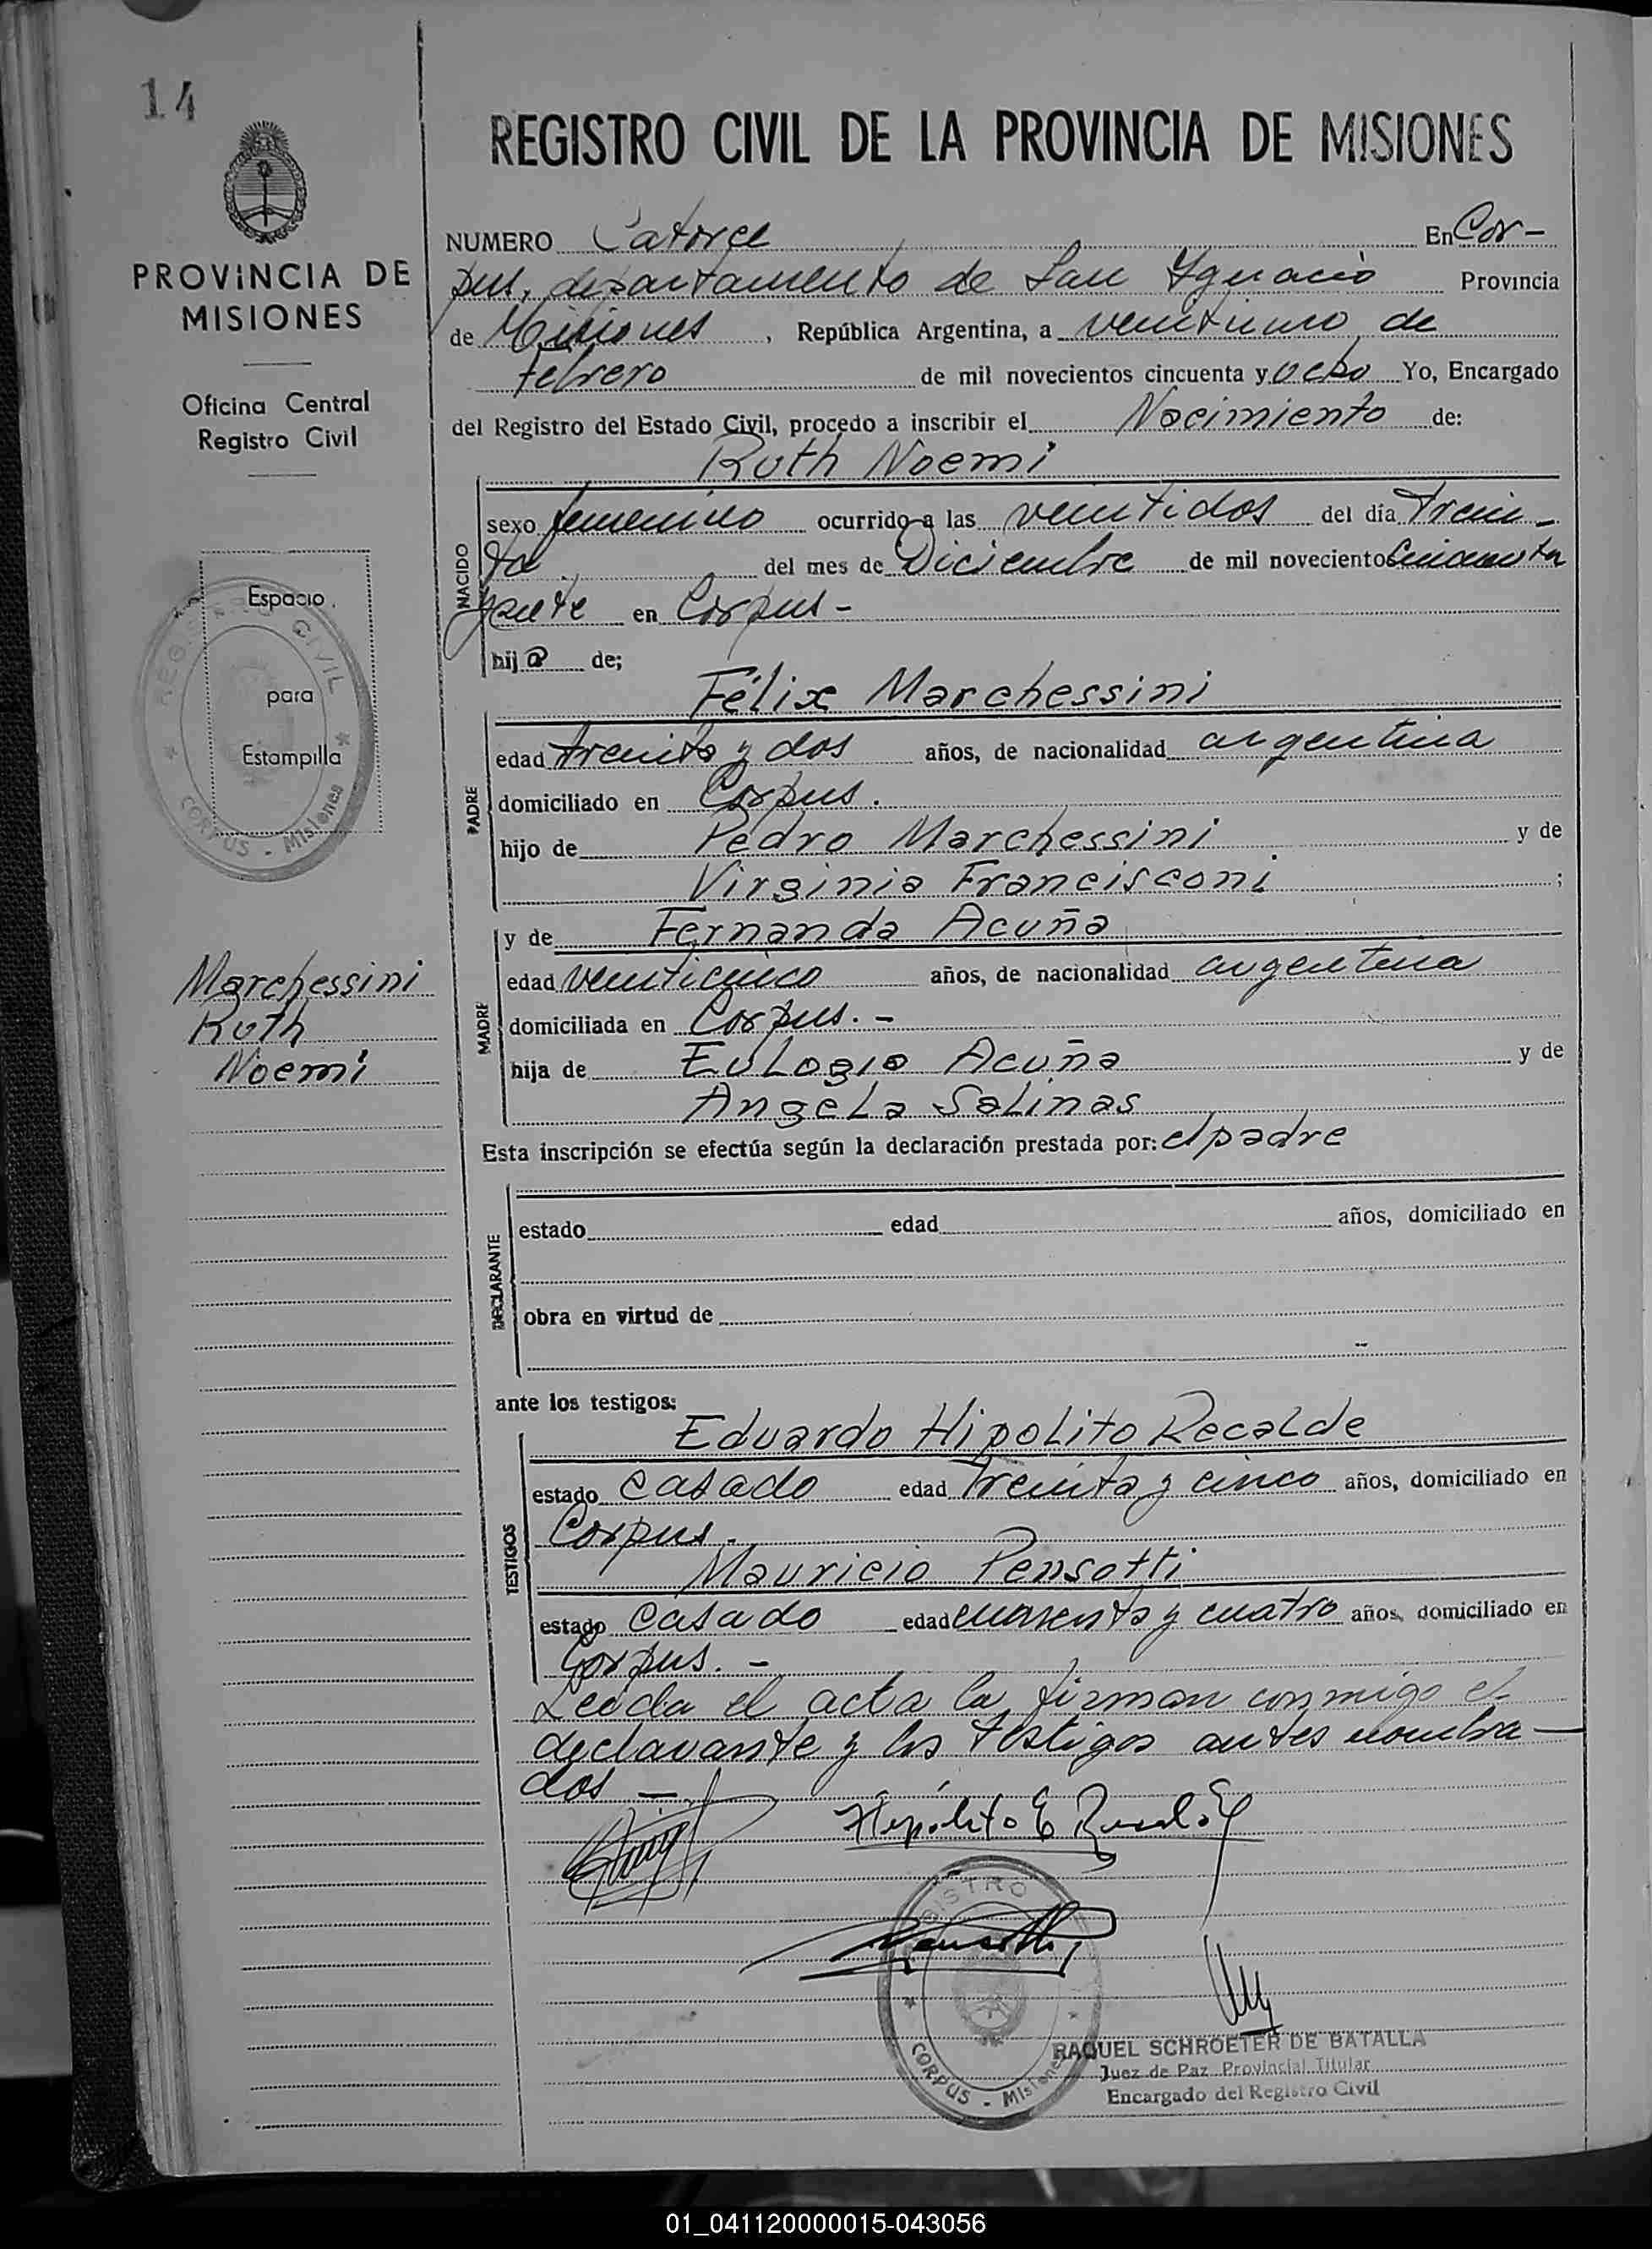 14
PROVINCIA DE
MISIONES
Oficina Central
Registro Civil
Espacio
para
Estampilla
REGISTRO CIVIL
CORPUS - Misiones
Marchessini
Ruth
Noemi
REGISTRO CIVIL DE LA PROVINCIA DE MISIONES
NUMERO Catorce En Cor-
pus, departamento de San Ygnacio Provincia
de Misiones, República Argentina, a veintiuno de
febrero de mil novecientos cincuenta y ocho Yo, Encargado
del Registro del Estado Civil, procedo a inscribir el Nacimiento de:
Ruth Noemi
NACIDO
sexo femenino ocurrido a las veintidos del día Trein-
ta del mes de Diciembre de mil noveciento Cincuenta
y siete en Corpus-
hij a de;
Félix Marchessini
PADRE
edad treinta y dos años, de nacionalidad argentina
domiciliado en Corpus.
hijo de Pedro Marchessini y de
Virginia Francisconi ;
y de Fernanda Acuña
MADRE
edad veinticinco años, de nacionalidad argentina
domiciliada en Corpus. -
hija de Eulogio Acuña y de
Angela Salinas
Esta inscripción se efectúa según la declaración prestada por: el padre
DECLARANTE
estado edad años, domiciliado en
obra en virtud de
ante los testigos:
Eduardo Hipolito Recalde
TESTIGOS
estado casado edad treinta y cinco años, domiciliado en
Corpus.
Mauricio Pensotti
estado casado edad cuarenta y cuatro años, domiciliado en
Corpus. -
Leida el acta la firman conmigo el
declarante y los testigos antes nombra-
dos -
Hipólito E Recalde
Pensotti
REGISTRO
CORPUS - Misiones
RAQUEL SCHROETER DE BATALLA
Juez de Paz Provincial Titular
Encargado del Registro Civil
01_041120000015-043056